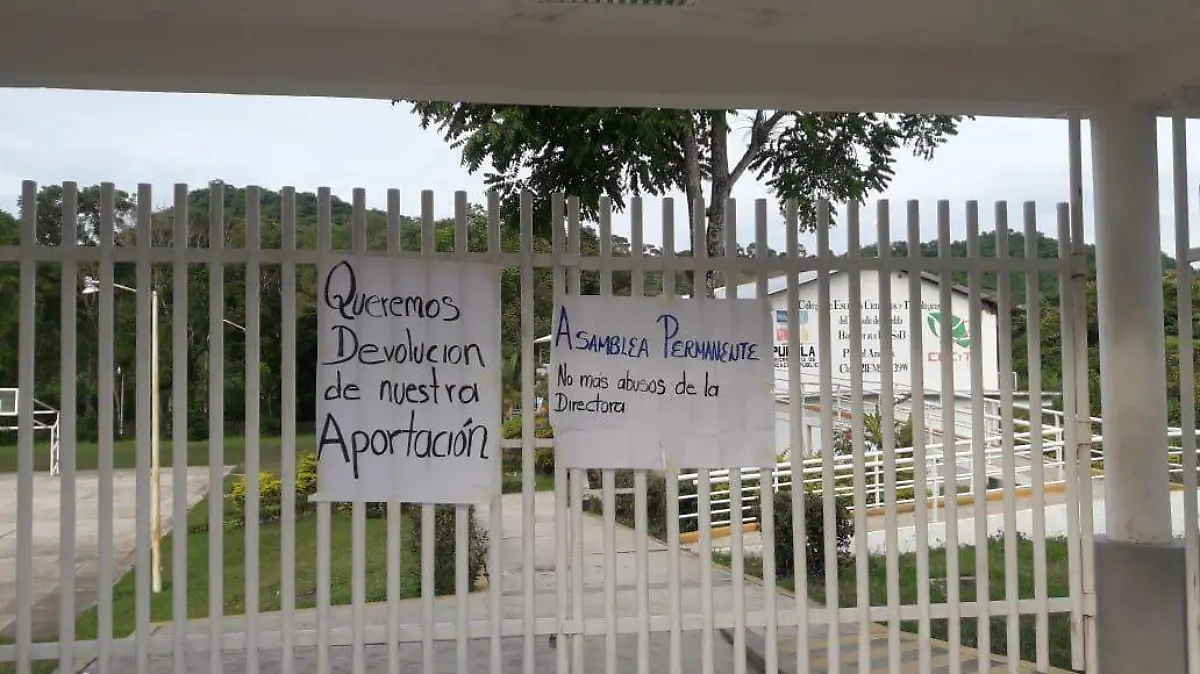 Queremos
Devolucion
de nuestra
Aportación
Asamblea Permanente
No más abusos de la
Directora
Estudios Científicos y
del Estado de
Puebla
CECyT